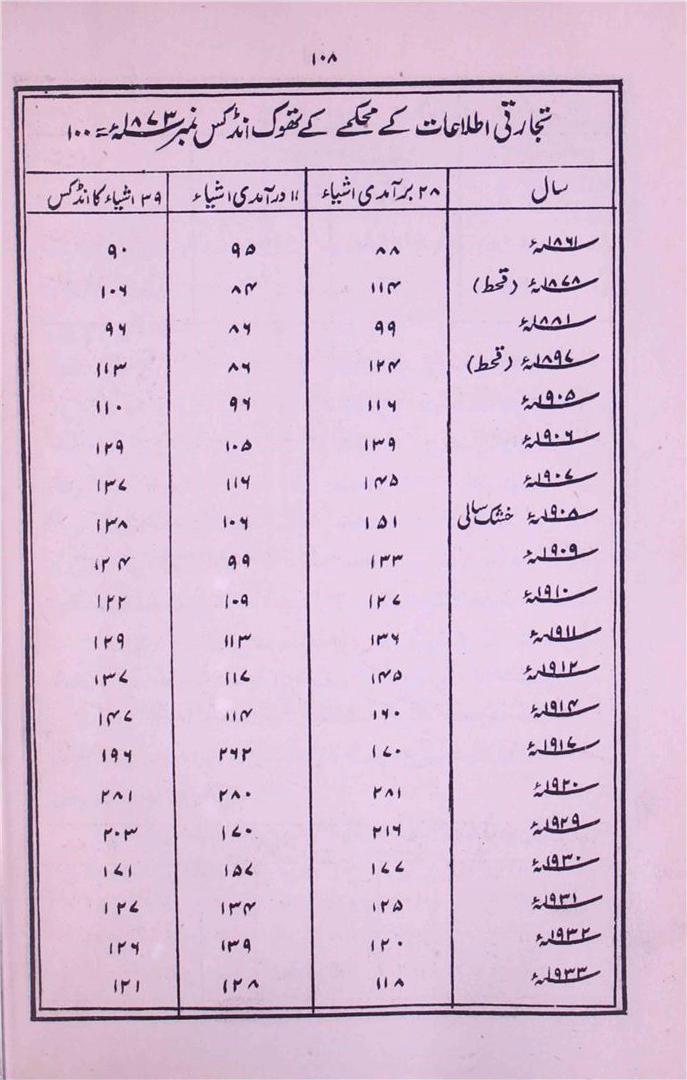 ۱۰۸
تجارتی اطلاعات کے محکمے کے تھوک انڈکس نمبر ۱۸۷۳ء = ۱۰۰
سال ۲۸ برآمدی اشیاء ۱۱ درآمدی اشیاء ۳۹ اشیاء کا انڈکس
۱۸۶۱ء ۸۸ ۹۵ ۹۰
۱۸۷۸ء (قحط) ۱۱۴ ۸۴ ۱۰۶
۱۸۸۱ء ۹۹ ۸۶ ۹۶
۱۸۹۷ء (قحط) ۱۲۴ ۸۶ ۱۱۳
۱۹۰۵ء ۱۱۶ ۹۶ ۱۱۰
۱۹۰۶ء ۱۳۹ ۱۰۵ ۱۲۹
۱۹۰۷ء ۱۴۵ ۱۱۶ ۱۳۷
۱۹۰۸ء خشک سالی ۱۵۱ ۱۰۶ ۱۳۸
۱۹۰۹ء ۱۳۳ ۹۹ ۱۲۴
۱۹۱۰ء ۱۲۷ ۱۰۹ ۱۲۲
۱۹۱۱ء ۱۳۶ ۱۱۳ ۱۲۹
۱۹۱۲ء ۱۴۵ ۱۱۷ ۱۳۷
۱۹۱۴ء ۱۶۰ ۱۱۴ ۱۴۷
۱۹۱۷ء ۱۷۰ ۲۶۲ ۱۹۶
۱۹۲۰ء ۲۸۱ ۲۸۰ ۲۸۱
۱۹۲۹ء ۲۱۶ ۱۷۰ ۲۰۳
۱۹۳۰ء ۱۷۷ ۱۵۷ ۱۷۱
۱۹۳۱ء ۱۲۵ ۱۳۴ ۱۲۷
۱۹۳۲ء ۱۲۰ ۱۳۹ ۱۲۶
۱۹۳۳ء ۱۱۸ ۱۲۸ ۱۲۱